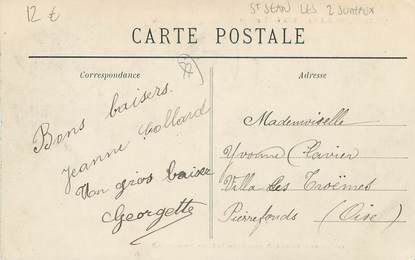 12 €
St JEAN LES 2 JUMEAUX
CARTE POSTALE
Correspondance
Adresse
Bons baisers.
Jeanne Collard
Un gros baiser
Georgette
Mademoiselle
Yvonne Clavier
Villa les Troënes
Pierrefonds (Oise)